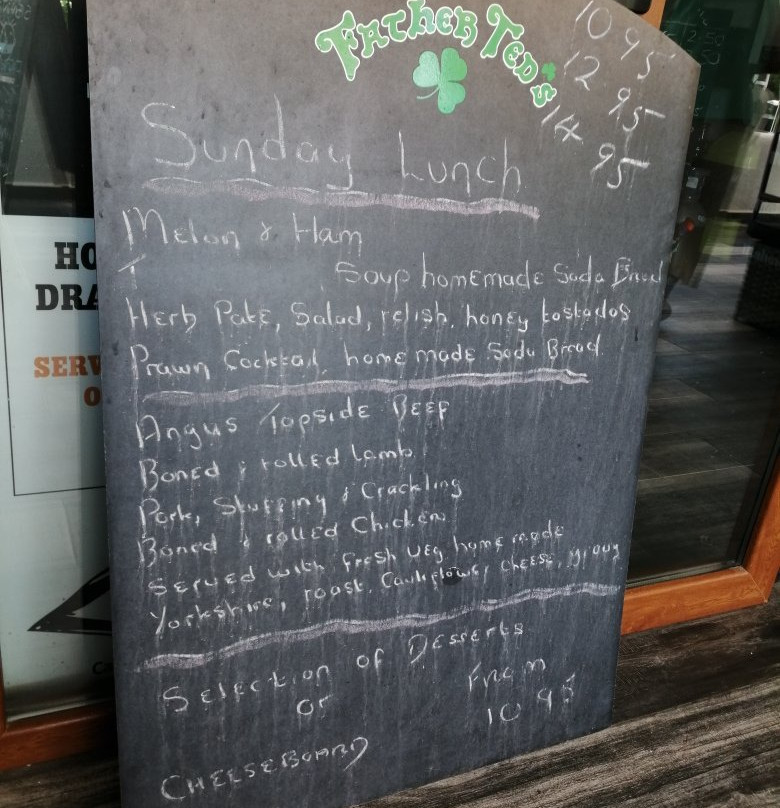 FATHER TED'S
10 95
12 95
14 95
Sunday Lunch
Melon & Ham
Soup homemade Soda Bread
Herb Pate, Salad, relish, honey tostados
Prawn Cocktail, home made Soda Bread.
Angus Topside Beef
Boned & rolled Lamb
Pork, Stuffing & Crackling
Boned & rolled Chicken
Served with fresh veg, home made
Yorkshire, roast, Cauliflower cheese, gravy
Selection of Desserts
or
From
10 95
CHEESEBOARD
HO
DRA
SERV
O